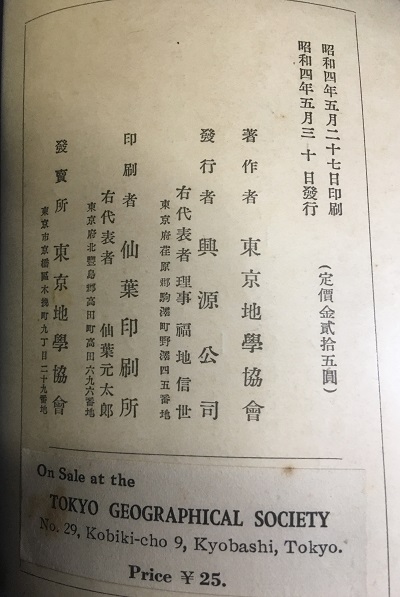 昭和四年五月二十七日印刷
昭和四年五月三十日發行
(定價金貳拾五圓)
著作者 東京地學協會
發行者 興源公司
右代表者理事 福地信世
東京府荏原郡駒澤町野澤四五番地
印刷者 仙葉印刷所
右代表者 仙葉元太郎
東京府北豐島郡高田町高田六九六番地
發賣所 東京地學協會
東京市京橋區木挽町九丁目二十九番地
On Sale at the
TOKYO GEOGRAPHICAL SOCIETY
No. 29, Kobiki-cho 9, Kyobashi, Tokyo.
Price ¥ 25.